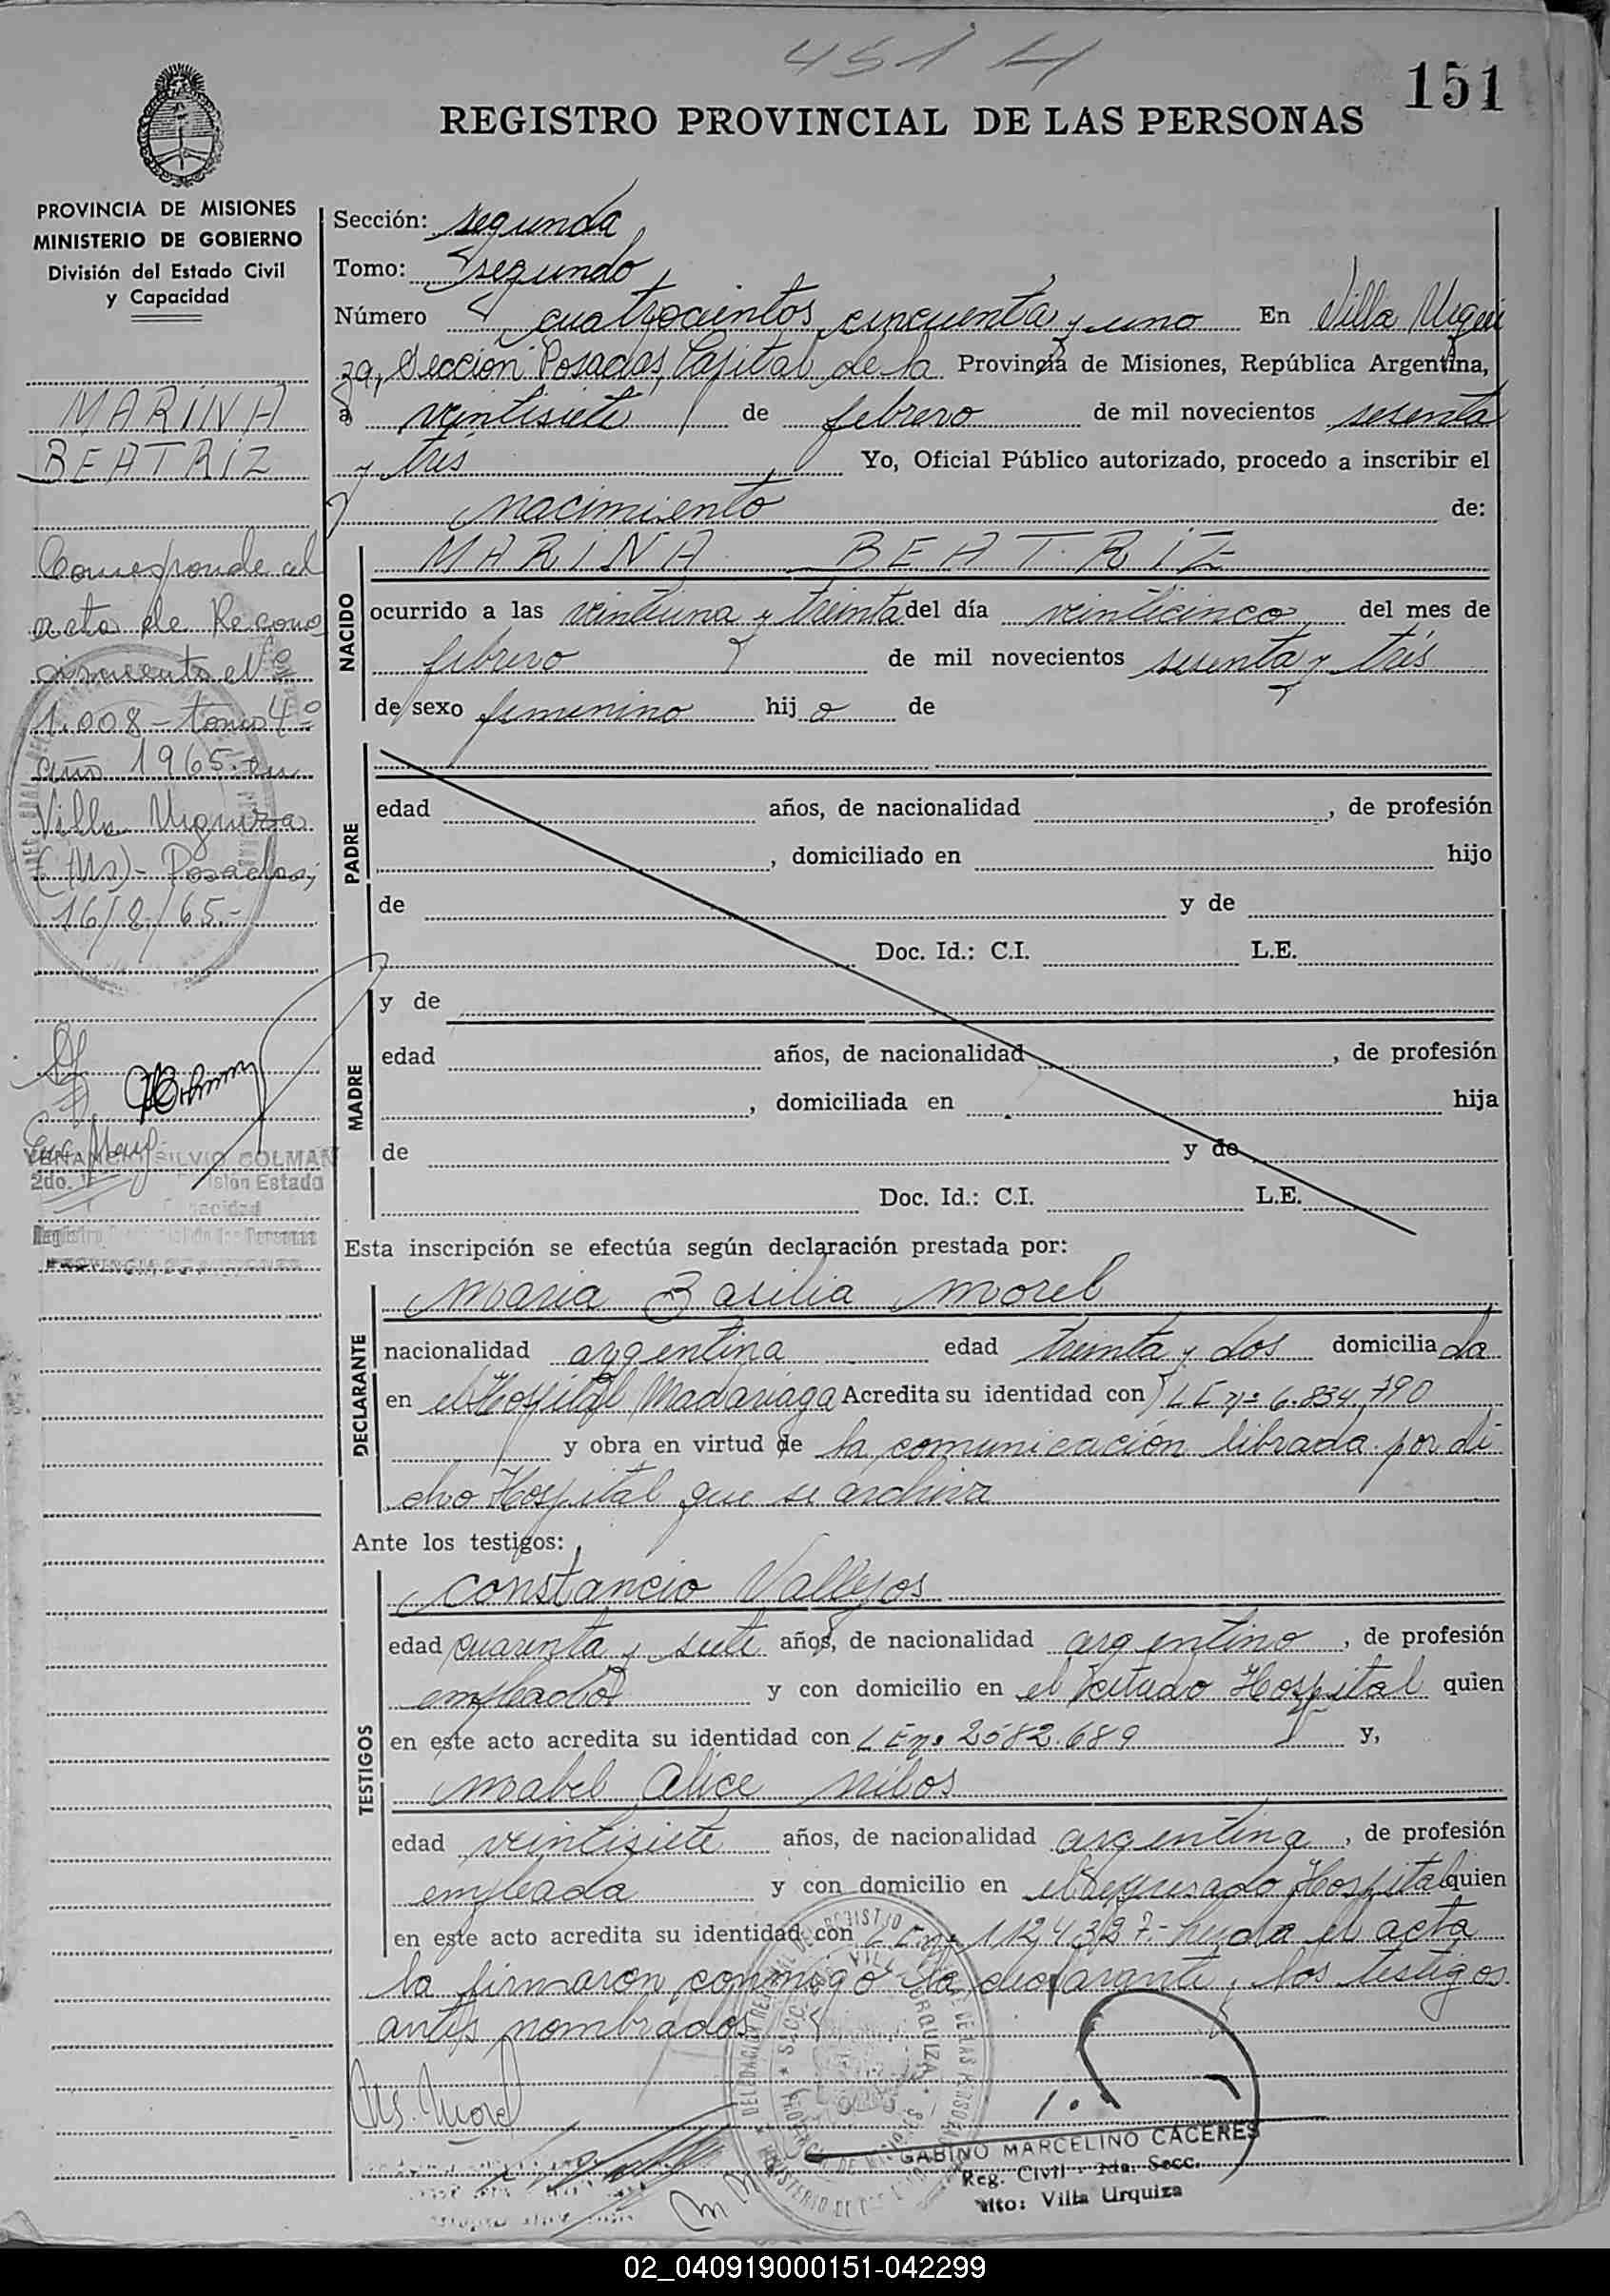 451 H
151
REGISTRO PROVINCIAL DE LAS PERSONAS
PROVINCIA DE MISIONES
MINISTERIO DE GOBIERNO
División del Estado Civil
y Capacidad
MARINA
BEATRIZ
Corresponde al
acta de Recono
cimiento Nº
1.008 - tomo 4º
año 1965 - en
Villa Urquiza
(Ms) - Posadas,
16/8/65.-
SILVIO COLMAN
2do.
Estado
Sección: segunda
Tomo: segundo
Número cuatrocientos cincuenta y uno En Villa Urqui
za, Sección Posadas, Capital de la Provincia de Misiones, República Argentina,
a veintisiete de febrero de mil novecientos sesenta
y tres Yo, Oficial Público autorizado, procedo a inscribir el
nacimiento de:
NACIDO
MARINA BEATRIZ
ocurrido a las veintiuna y treinta del día veinticinco del mes de
febrero de mil novecientos sesenta y trés
de sexo femenino hij a de
PADRE
edad años, de nacionalidad , de profesión
, domiciliado en hijo
de y de
Doc. Id.: C.I. L.E.
MADRE
y de
edad años, de nacionalidad , de profesión
, domiciliada en hija
de y de
Doc. Id.: C.I. L.E.
Esta inscripción se efectúa según declaración prestada por:
DECLARANTE
Maria Basilia Morel
nacionalidad argentina edad treinta y dos domicilia da
en el Hospital Madariaga Acredita su identidad con L E nº 6.834.790
y obra en virtud de la comunicación librada por di
cho Hospital que se archiva
Ante los testigos:
TESTIGOS
Constancio Vallejos
edad cuarenta y siete años, de nacionalidad argentino , de profesión
empleado y con domicilio en el citado Hospital quien
en este acto acredita su identidad con L E nº 2582.689 y,
Mabel Alice
edad veintisiete años, de nacionalidad argentina , de profesión
empleada y con domicilio en el expresado Hospital quien
en este acto acredita su identidad con leida el acta
la firmaron conmigo la declarante y los testigos
antes nombrados
Ms. Morel
GABINO MARCELINO CACERES
Reg. Civil - 2da. Secc.
Villa Urquiza
02_040919000151-042299